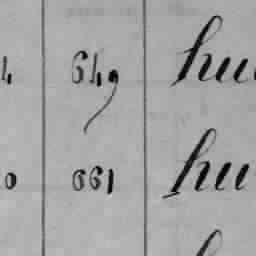 4 649 hu
0 661 hu